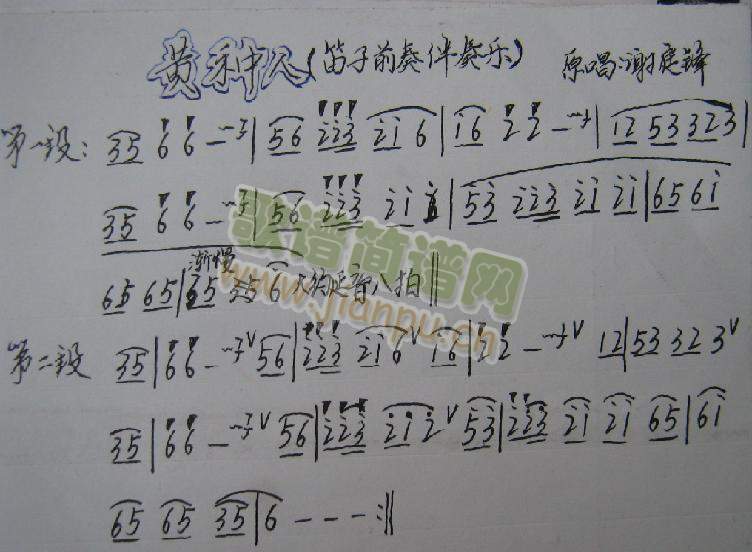 黄种人(笛子前奏伴奏乐) 原唱:谢霆锋
第一段: 35 6 6 — | 56 223 21 6 | 16 2 2 — | 12 53 323 |
35 6 6 — | 56 223 21 | 53 223 21 21 | 65 61
65 65 | 35 渐慢 35 6 大约延音八拍 ‖
第二段 35 | 6 6 — V 56 | 223 216 V 16 | 22 — V 12 | 53 32 3 V
35 | 6 6 — V 56 | 223 212 V 53 | 223 21 21 65 | 61
65 65 35 | 6 - - - :‖
歌谱简谱网
www.jianpu.cn